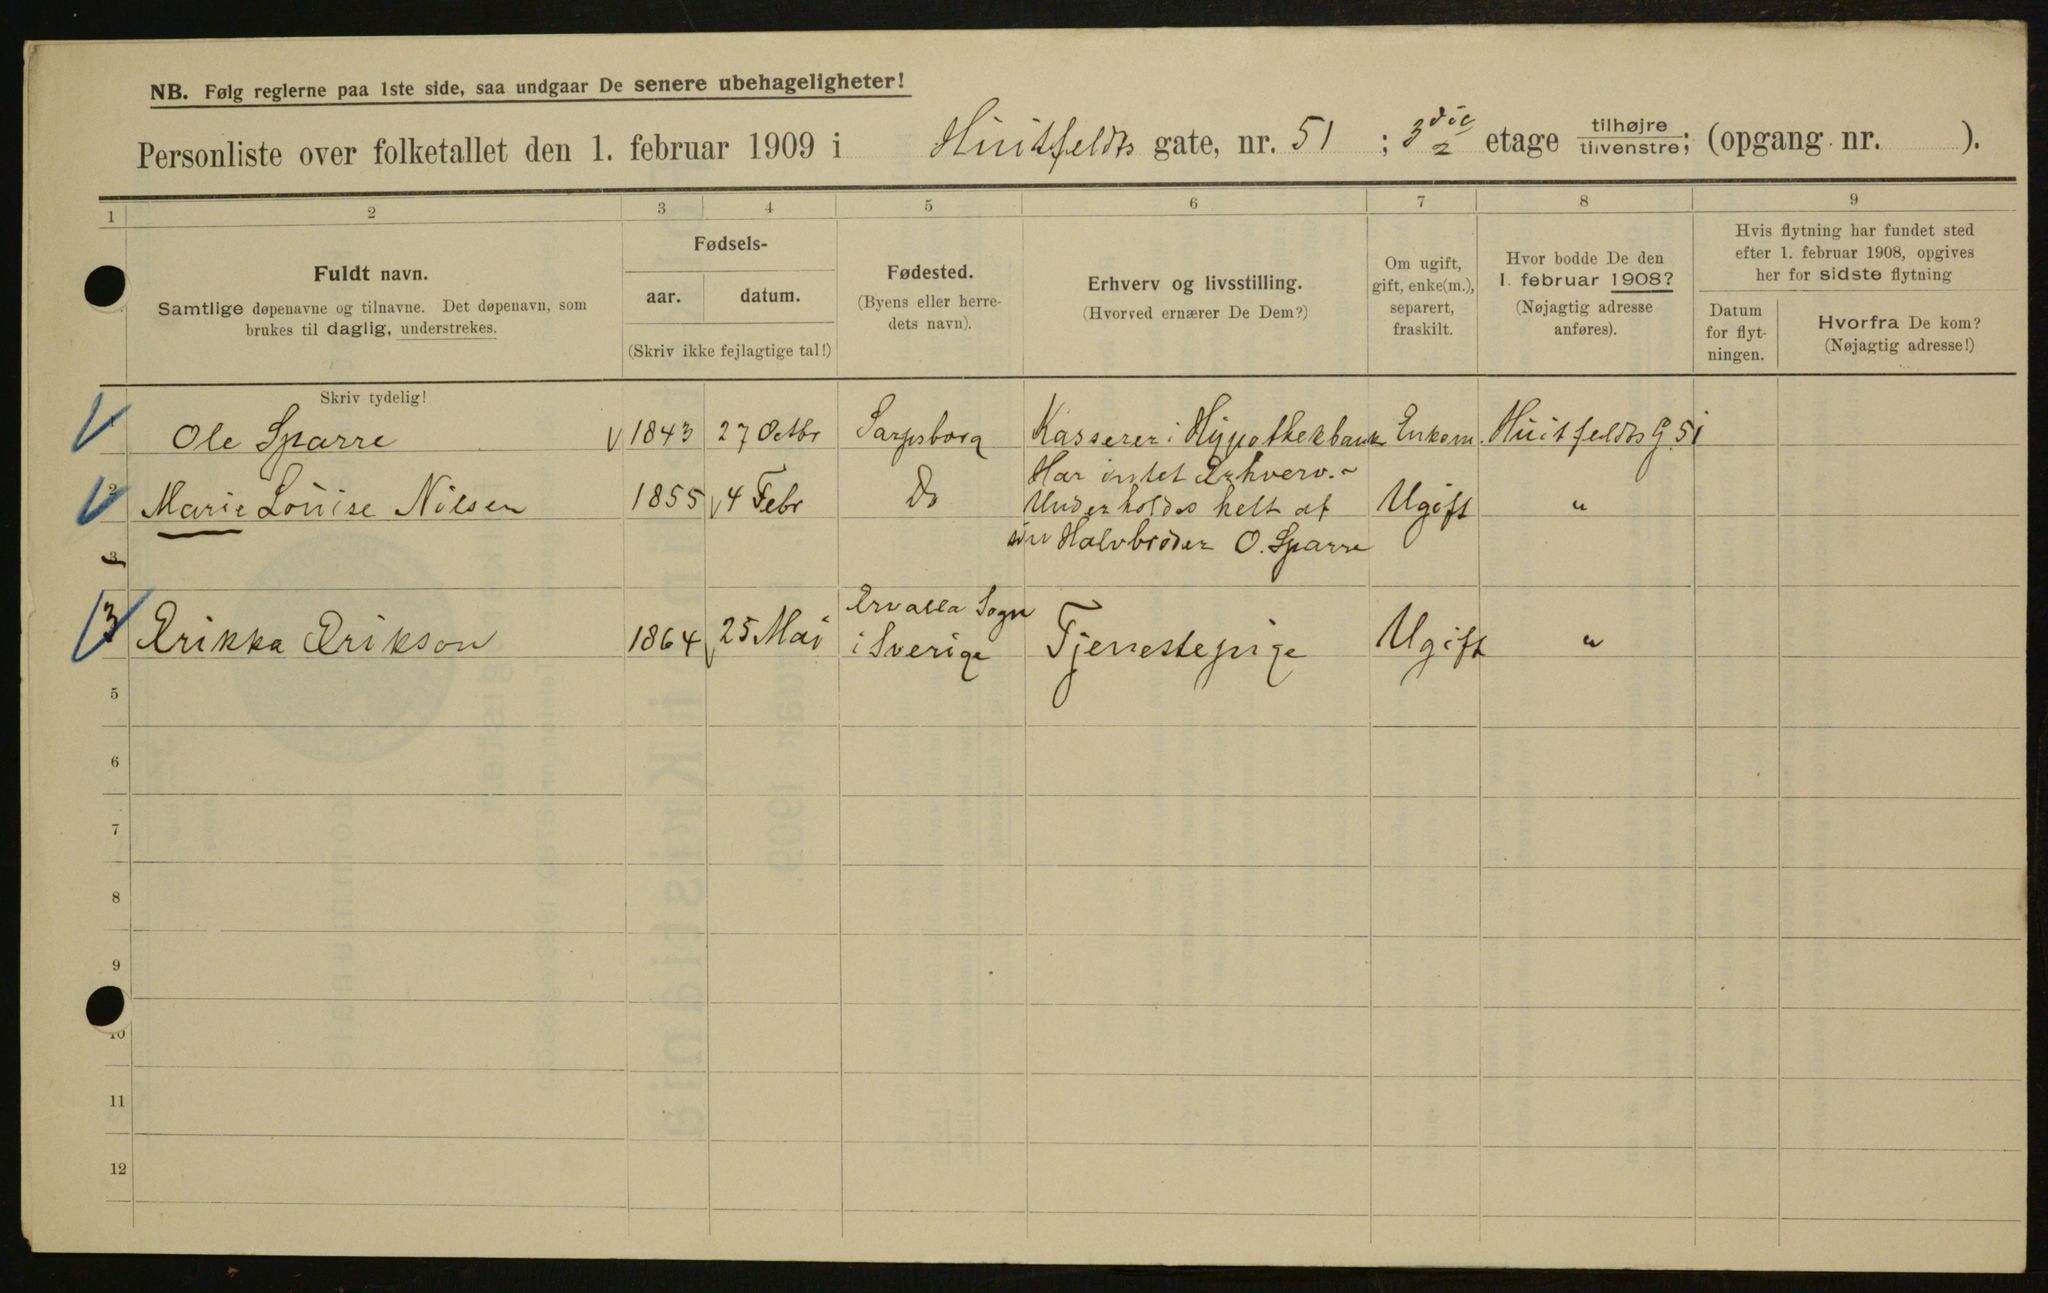 NB. Følg reglerne paa 1ste side, saa undgaar De senere ubehageligheter!
Personliste over folketallet den 1. februar 1909 i Huitfeldts gate, nr. 51 ; 3 etage tilhøjre tilvenstre; (opgang nr. ).
1 2 3 4 5 6 7 8 9
Fuldt navn.
Samtlige døpenavne og tilnavne. Det døpenavn, som
brukes til daglig, understrekes.
Skriv tydelig!
Fødsels-
aar. datum.
(Skriv ikke fejlagtige tal!)
Fødested.
(Byens eller herre-
dets navn).
Erhverv og livsstilling.
(Hvorved ernærer De Dem?)
Om ugift,
gift, enke(m.),
separert,
fraskilt.
Hvor bodde De den
1. februar 1908?
(Nøjagtig adresse
anføres).
Hvis flytning har fundet sted
efter 1. februar 1908, opgives
her for sidste flytning
Datum
for flyt-
ningen.
Hvorfra De kom?
(Nøjagtig adresse!)
Ole Sparre 1843 27 Octbr Sarpsborg Kasserer i Hypothekbank Enkem. Huitfeldts G 51
2 Marie Louise Nilsen 1855 4 Febr Do Har intet Erhverv. -
Underholdes helt af
sin Halvbroder O. Sparre
Ugift "
3
3 Erikka Erikson 1864 25 Mai Ervalla Sogn
i Sverige
Tjenestepige Ugift "
5
6
7
8
9
10
11
12